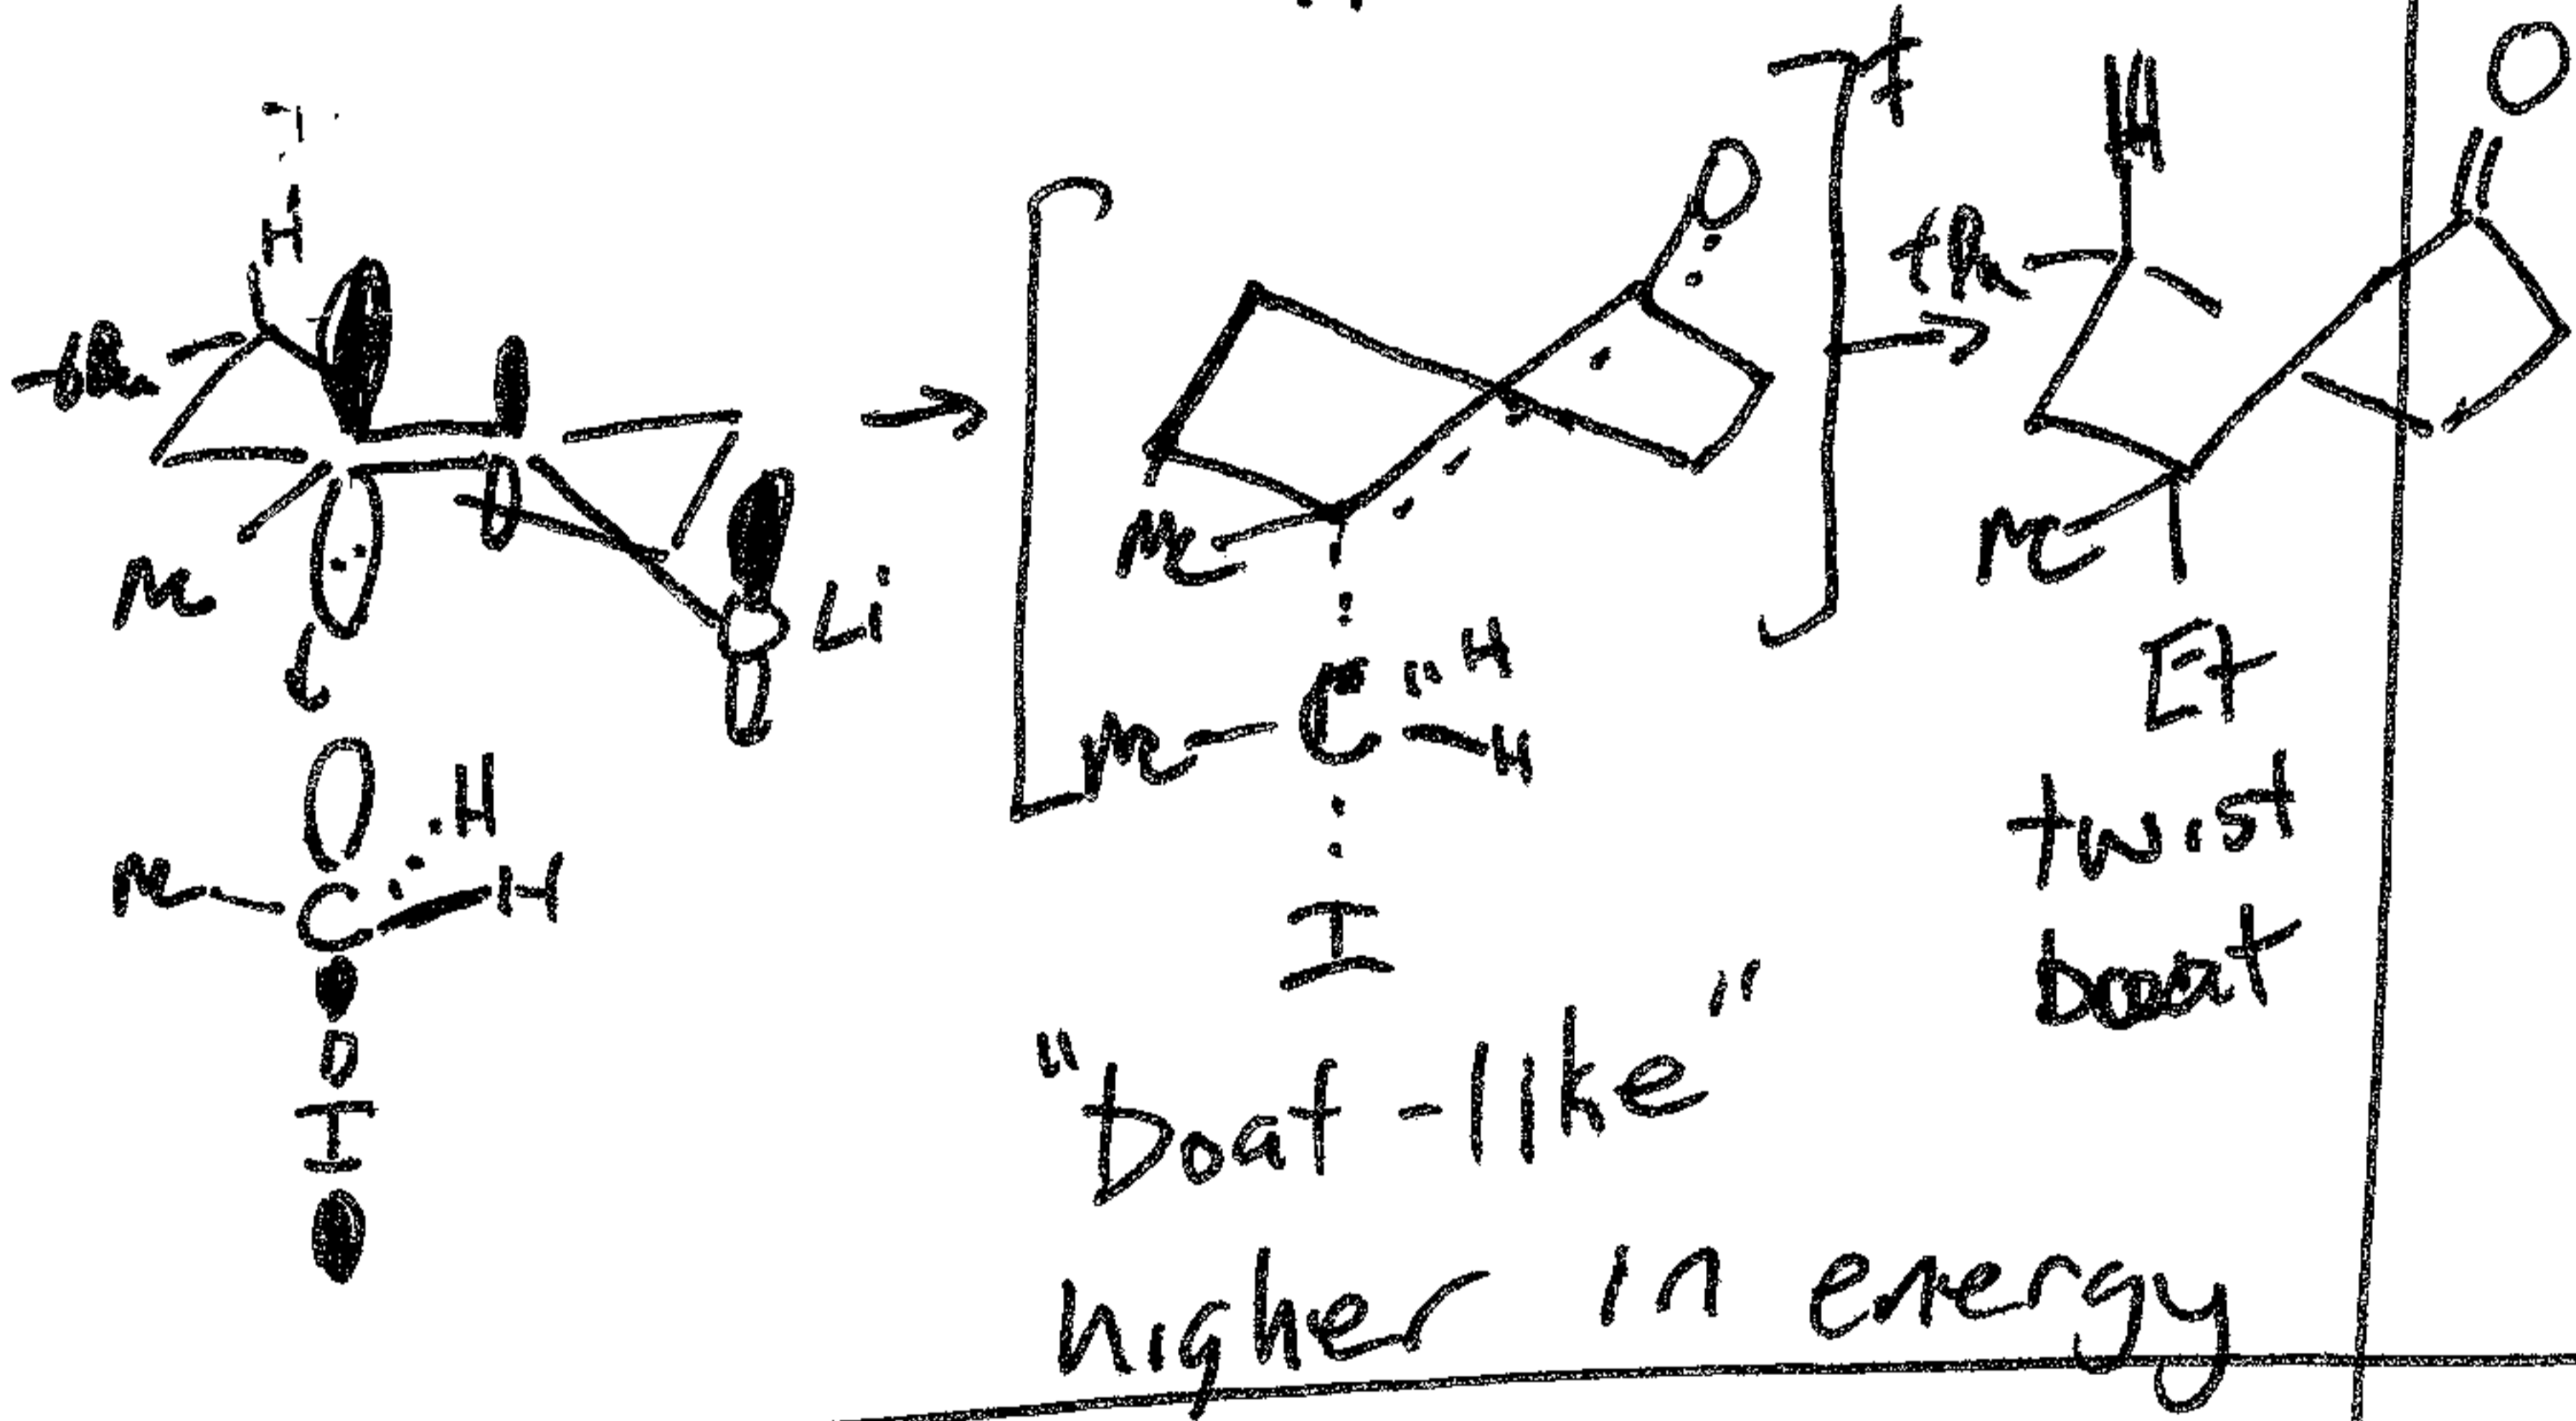 H
tBu
Me
Li
Me C H H
I
O
‡
Me
Me C H H
I
"boat-like"
higher in energy
H
O
tBu
Me
Et
twist
boat